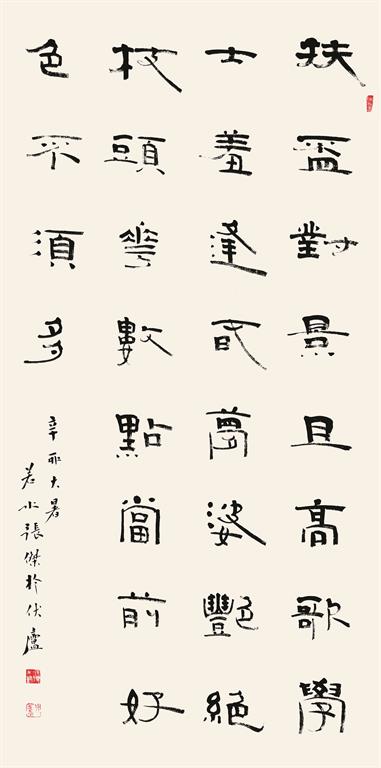 扶盃對景且高歌學
士羞逢旾夢婆艷絕
枝頭華數點當前好
色不須多
辛酉大暑
若水張傑於伏廬